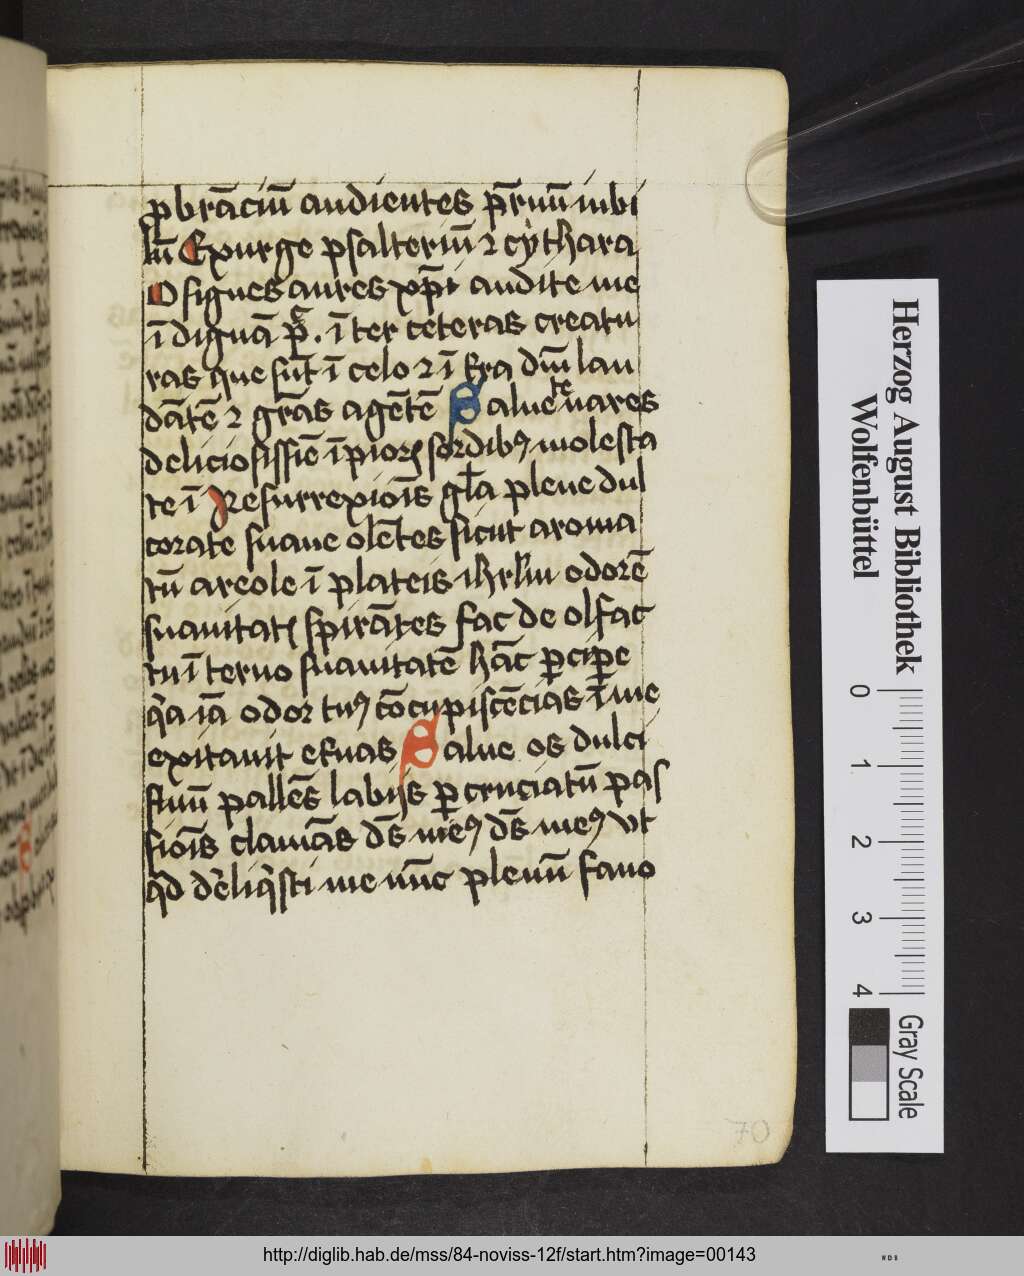 ꝓbrāciū audientes pr̄nuū iubi
lū Exurge psalteriū ⁊ cythara
O signes aures xp̄i audite me
ī dignā īter ceteras creatu
ras que sūt ī celo ⁊ ī tr̄a dn̄m lau
dātē ⁊ gr̄as agētē Salue te nares
deliciosissīe īpioꝝ sordibꝰ molesta
te ī Resurrexiōis gl̄a plene dul
corate suaue olētes sicut aroma
tū areole ī plateis ihrlm̄ odorē
suauitatꝭ spirātes fac de olfac
tu īterno suauitatē hāc ꝑciꝑe
q̄a iā odor tuꝰ cōcupiscēcias ī me
exitauit etnas Salue os dulci
fluū pallēs labijs ꝑ cruciatū pas
siōis clamās ds̄ meꝰ ds̄ meꝰ vt
qd dēliqsti me nūc plenū fano
70
Herzog August Bibliothek
Wolfenbüttel
0
1
2
3
4
Gray Scale
http://diglib.hab.de/mss/84-noviss-12f/start.htm?image=00143